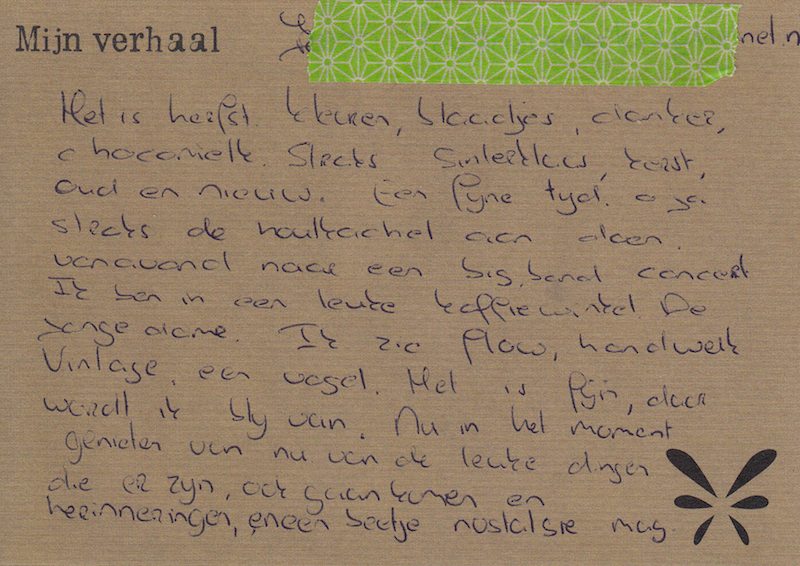 Mijn verhaal
nel.n
Het is herfst. kleuren, blaadjes, donker,
chocomelk. Straks Sinterklaas, kerst,
oud en nieuw. Een fijne tijd. o ja
straks de houtkachel aan doen.
vanavond naar een big band concert
Ik ben in een leuke koffiewinkel. De
jonge dame. Ik zie flow, handwerk
Vintage, een vogel. Het is fijn, daar
wordt ik blij van. Nu in het moment
genieten van nu van de leuke dingen
die er zijn, ook gaan komen en
herinneringen, en een beetje nostalgie mag.